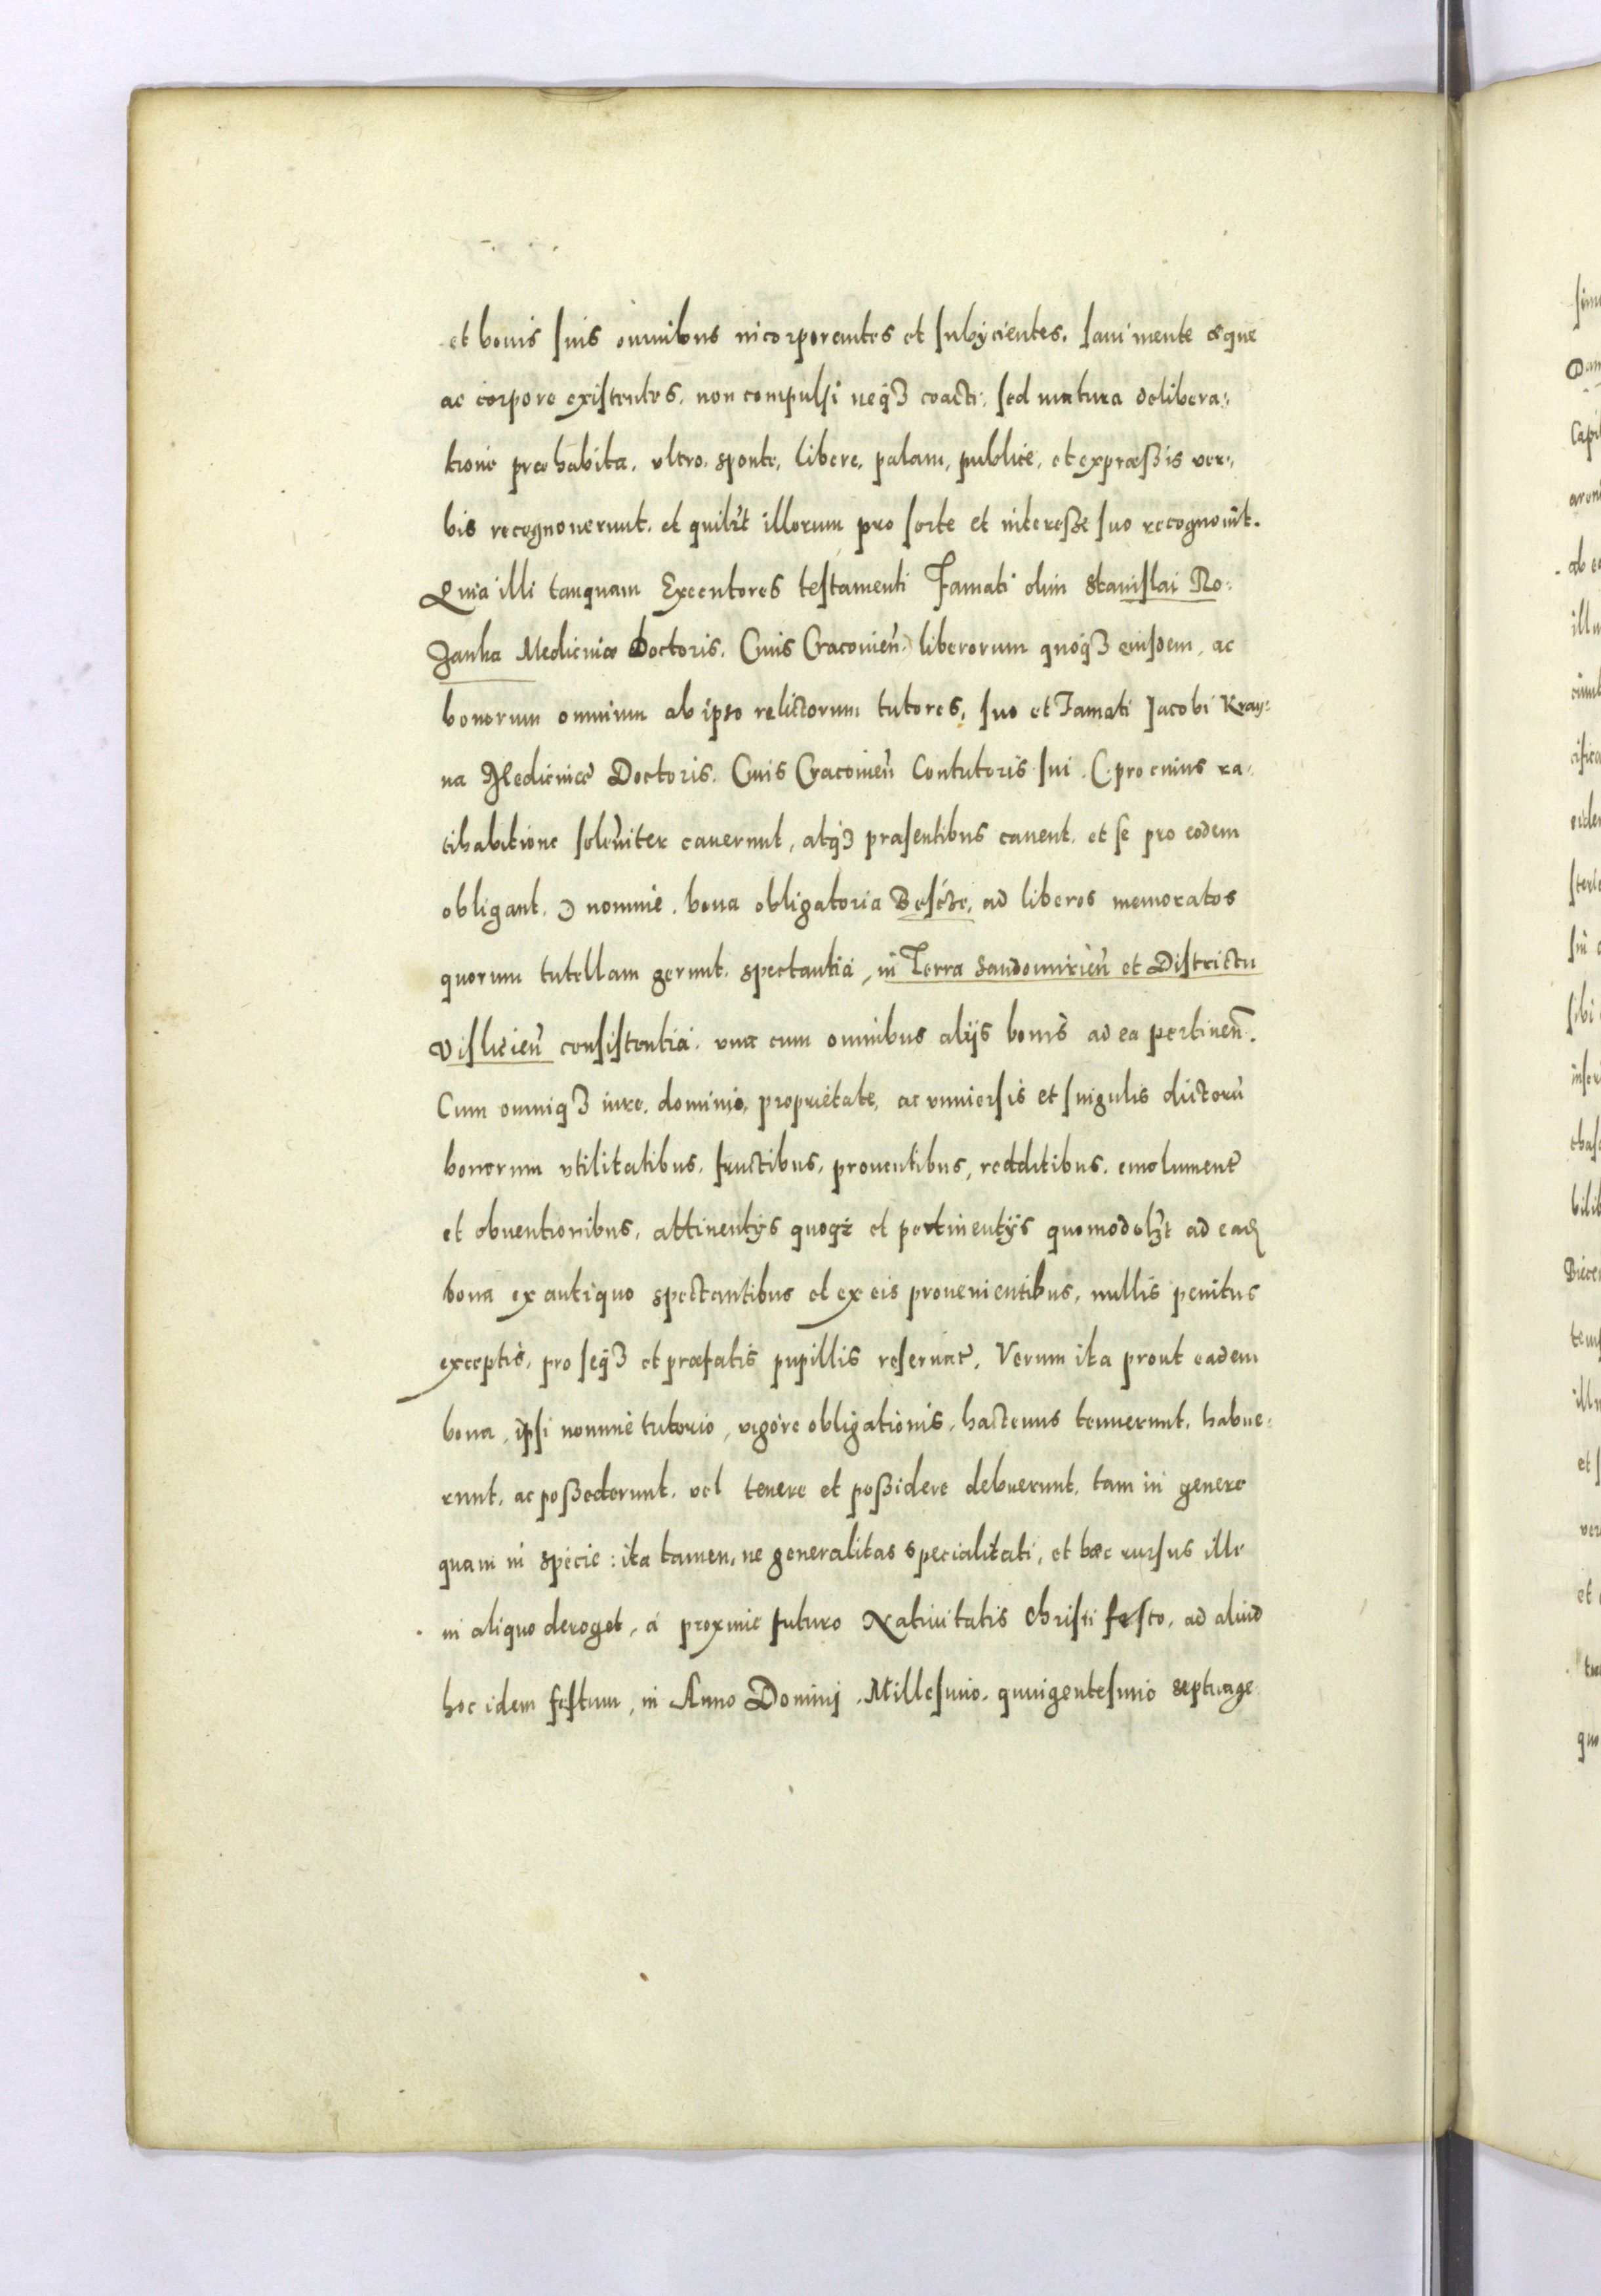 et bonis suis omnibus incorporantes et subycientes. sani mente æque
ac corpore existentes. non compulsi neq3 coacti. sed matura delibera:
tione præhabita. vltro. sponte, libere, palam, publice, et expræßis ver:
bis recognouerunt. et quilibt illorum pro sorte et interesse suo recognouit.
Quia illi tanquam Executores testamenti Famati olim Stanislai Ro:
zanka Medicinæ Doctoris. Ciuis Cracouien̄. liberorum quoq3 eiusdem, ac
bonorum omnium ab ipso relictorum tutores, suo et Famati Jacobi Kray:
na Medicinæ Doctoris. Ciuis Cracouien̄ Contutoris sui. (pro cuius ra:
tihabitione solen̄iter cauerunt, atq3 præsentibus cauent. et se pro eodem
obligant.) nomine. bona obligatoria Besicze, ad liberos memoratos
quorum tutellam gerunt. spectantia, in Terra Sandomirien̄ et Districtu
Vislicien̄ consistentia. vna cum omnibus alijs bonis ad ea pertinen̄.
Cum omniq3 iure. dominio, proprietate, ac vniuersis et singulis dictorū
bonorum vtilitatibus. fructibus, prouentibus, redditibus. emolument
et obuentionibus, attinentijs quoq3 et pertinentijs quomodolt ad ead
bona ex antiquo spectantibus et ex eis prouenientibus, nullis penitus
exceptis, pro seq3 et præfatis pupillis reseruat. Verum ita prout eadem
bona, ipsi nomine tutorio, vigore obligationis, hactenus tenuerunt. habue:
runt, ac poßederunt. vel tenere et poßidere debuerunt. tam in genere
quam in specie: ita tamen, ne generalitas specialitati, et hæc rursus ille
in aliquo deroget, a proxime futuro Natiuitatis Christi festo, ad aliud
hoc idem festum, in Anno Domini. Millesimo. quingentesimo septuage